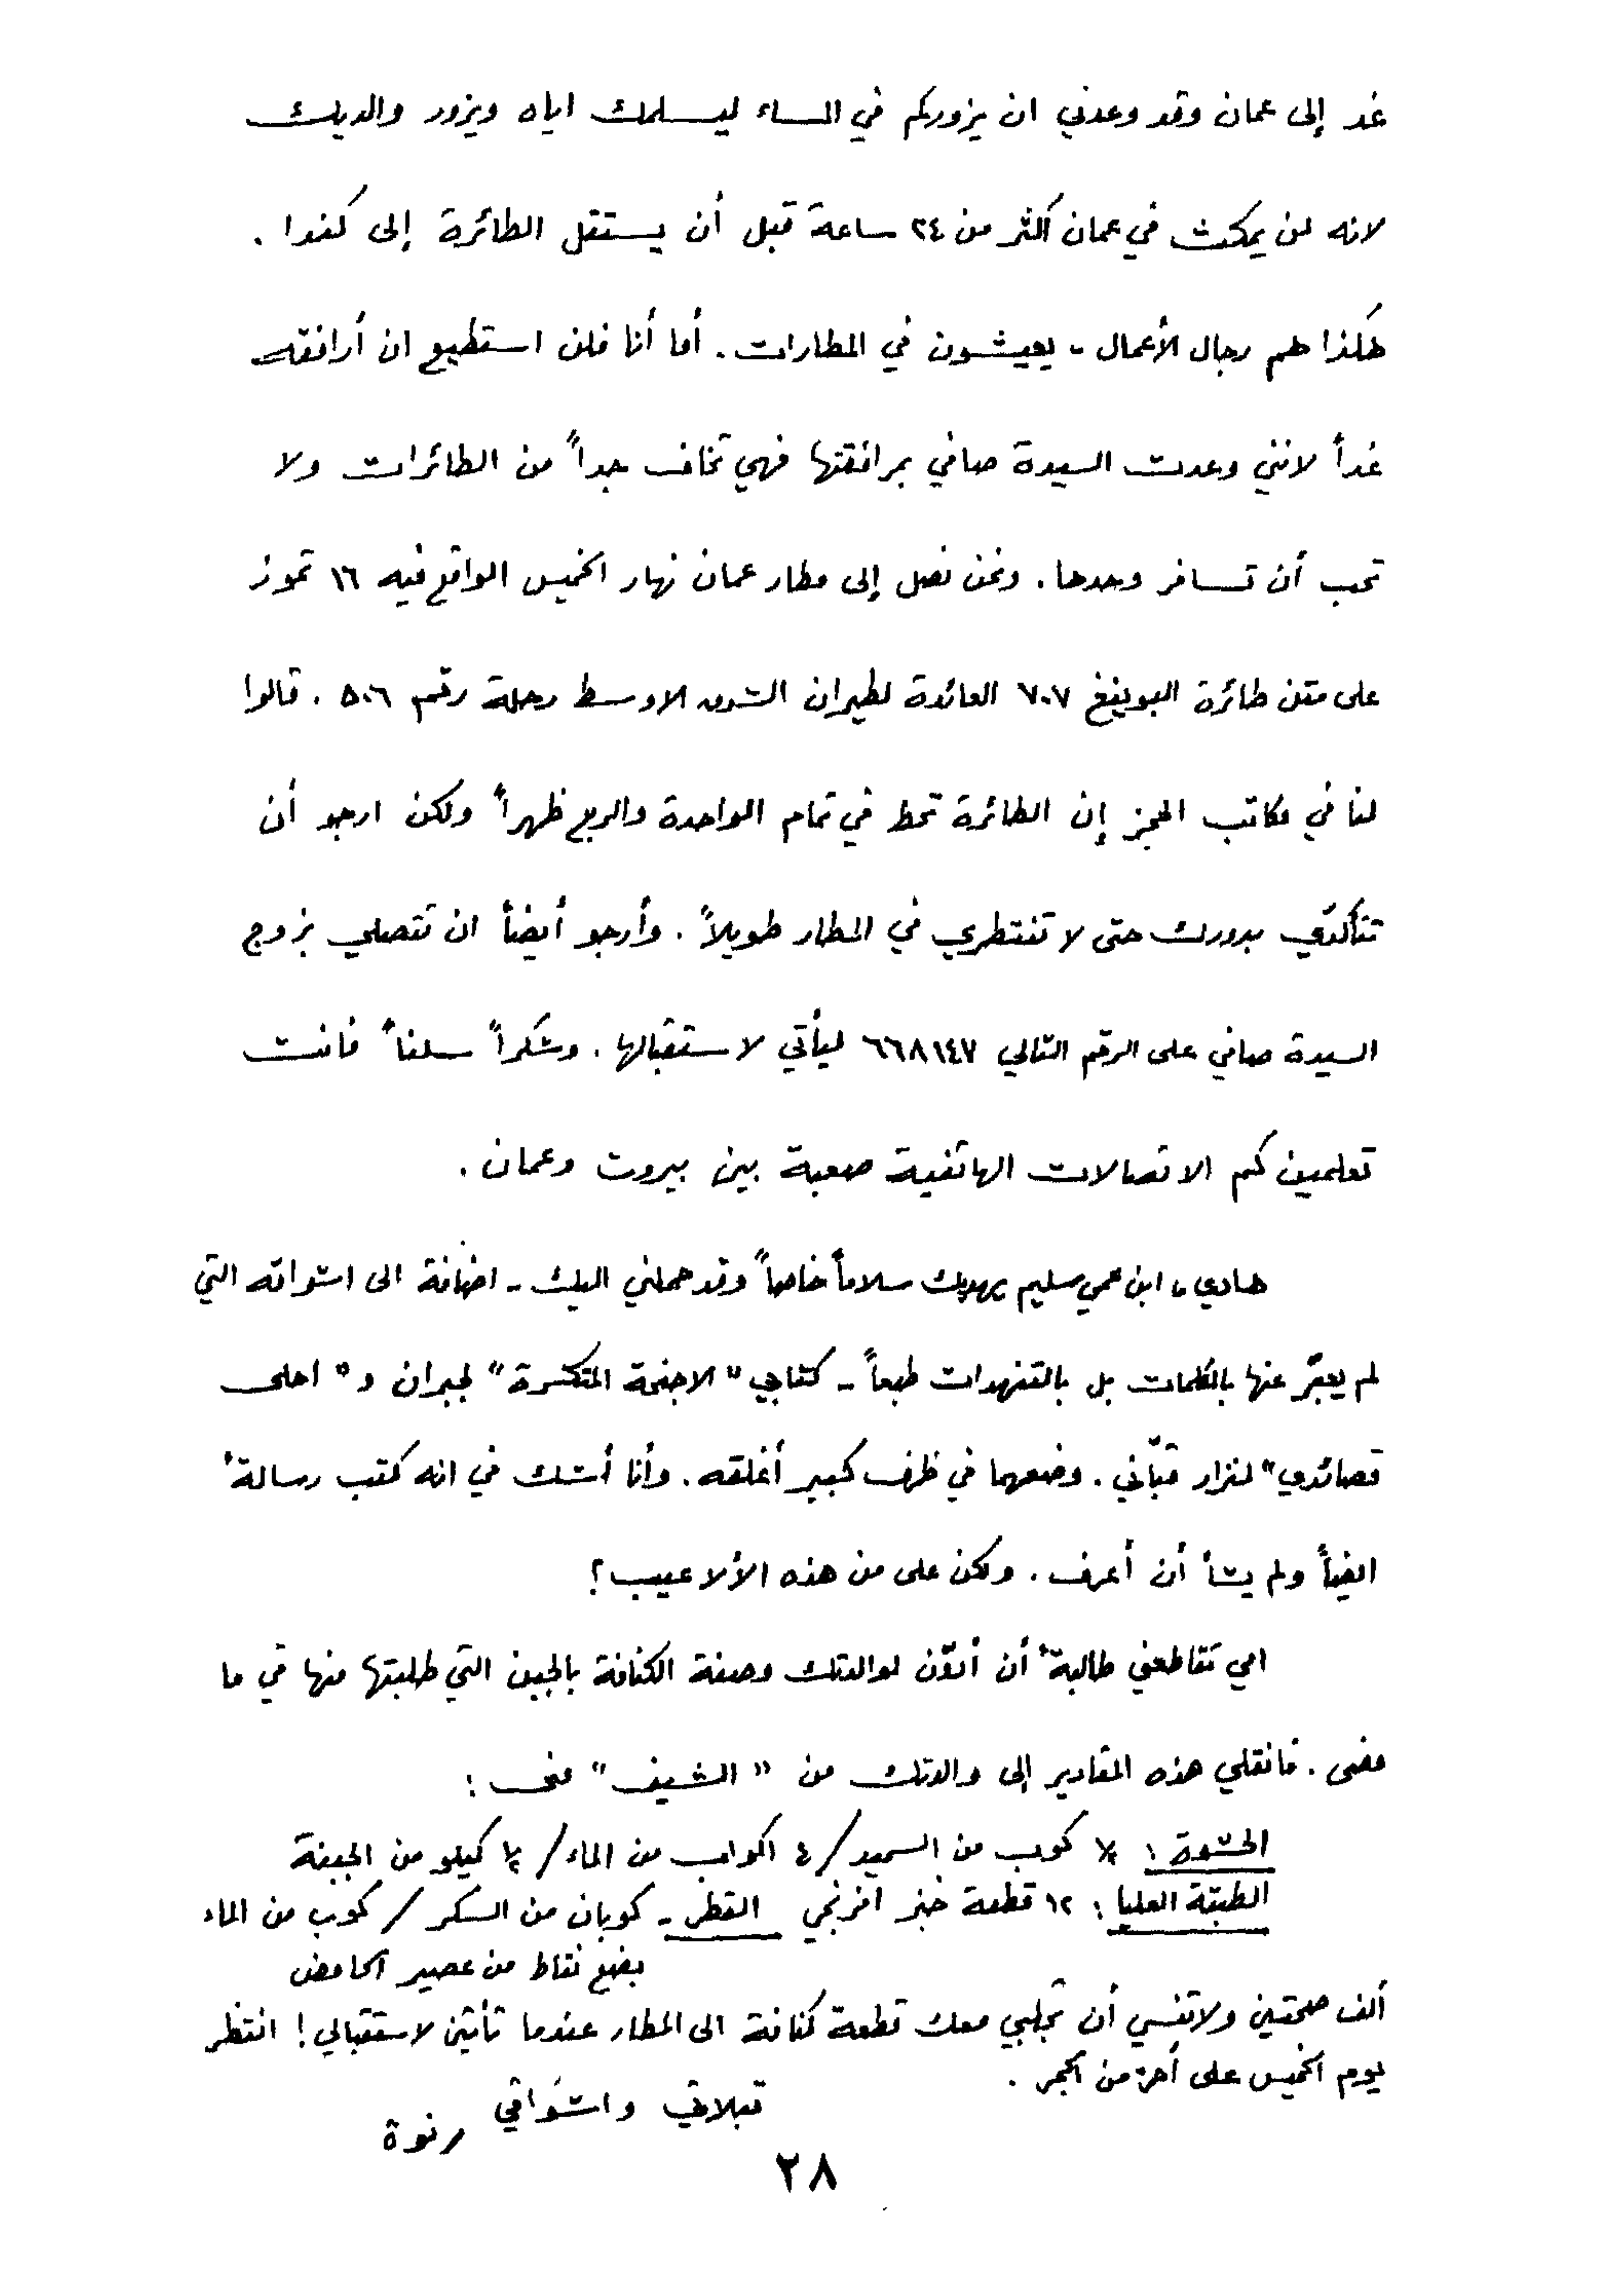 غد إلى عمان وقد وعدني ان يزوركم في المساء ليسلمك اياه ويزور والديك
لانه لن يمكث في عمان أكثر من ٢٤ ساعة قبل أن يستقل الطائرة إلى كندا .
هكذا هم رجال الأعمال - يعيشون في المطارات . أما أنا فلن استطيع ان أرافقه
غداً لانني وعدت السيدة صافي بمرافقتها فهي تخاف جداً من الطائرات ولا
تحب أن تسافر وحدها . ونحن نصل إلى مطار عمان نهار الخميس الواقع فيه ١٦ تموز
على متن طائرة البوينغ ٧٠٧ العائدة لطيران الشرق الاوسط رحلة رقم ٥٠٦ . قالوا
لنا في مكاتب الحجز إن الطائرة تحط في تمام الواحدة والربع ظهراً ولكن ارجو أن
تتأكدّي بدورك حتى لا تنتطري في المطار طويلاً . وأرجو أيضاً ان تتصلي بزوج
السيدة صافي على الرقم التالي ٦٦٨١٤٧ ليأتي لاستقبالها . وشكراً سلفاً فانت
تعلمين كم الاتصالات الهاتفية صعبة بين بيروت وعمان .
هادي ، ابن عمي سليم يهديك سلاماً خاصاً وقد حملني اليك - اضافة الى اشواقه التي
لم يعبّر عنها بالكلمات بل بالتنهدات طبعاً - كتابي " الاجنحة المتكسرة " لجبران و " احلى
قصائدي " لنزار قبّاني . وضعهما في ظرف كبير أغلقه . وأنا أشك في انه كتب رسالةً
ايضاً ولم يشأ أن أعرف . ولكن على من هذه الألاعيب ؟
امي تقاطعني طالبةً أن أدوّن لوالدتك وصفة الكنافة بالجبن التي طلبتها منها في ما
مضى . فانقلي هذه المقادير إلى والدتك من " الشيف " منى :
الحشوة : ½ كوب من السميد / ٤ اكواب من الماء / ½ كيلو من الجبنة
الطبقة العليا : ١٢ قطعة خبز افرنجي القطر - كوبان من السكر / كوب من الماء
بضع نقاط من عصير الحامض
ألف صحتين ولا تنسي أن تجلبي معك قطعة كنافة الى المطار عندما تأتين لاستقبالي ! انتظر
يوم الخميس على أحرّ من الجمر .
قبلاتي واشواقي
رنوة
٢٨